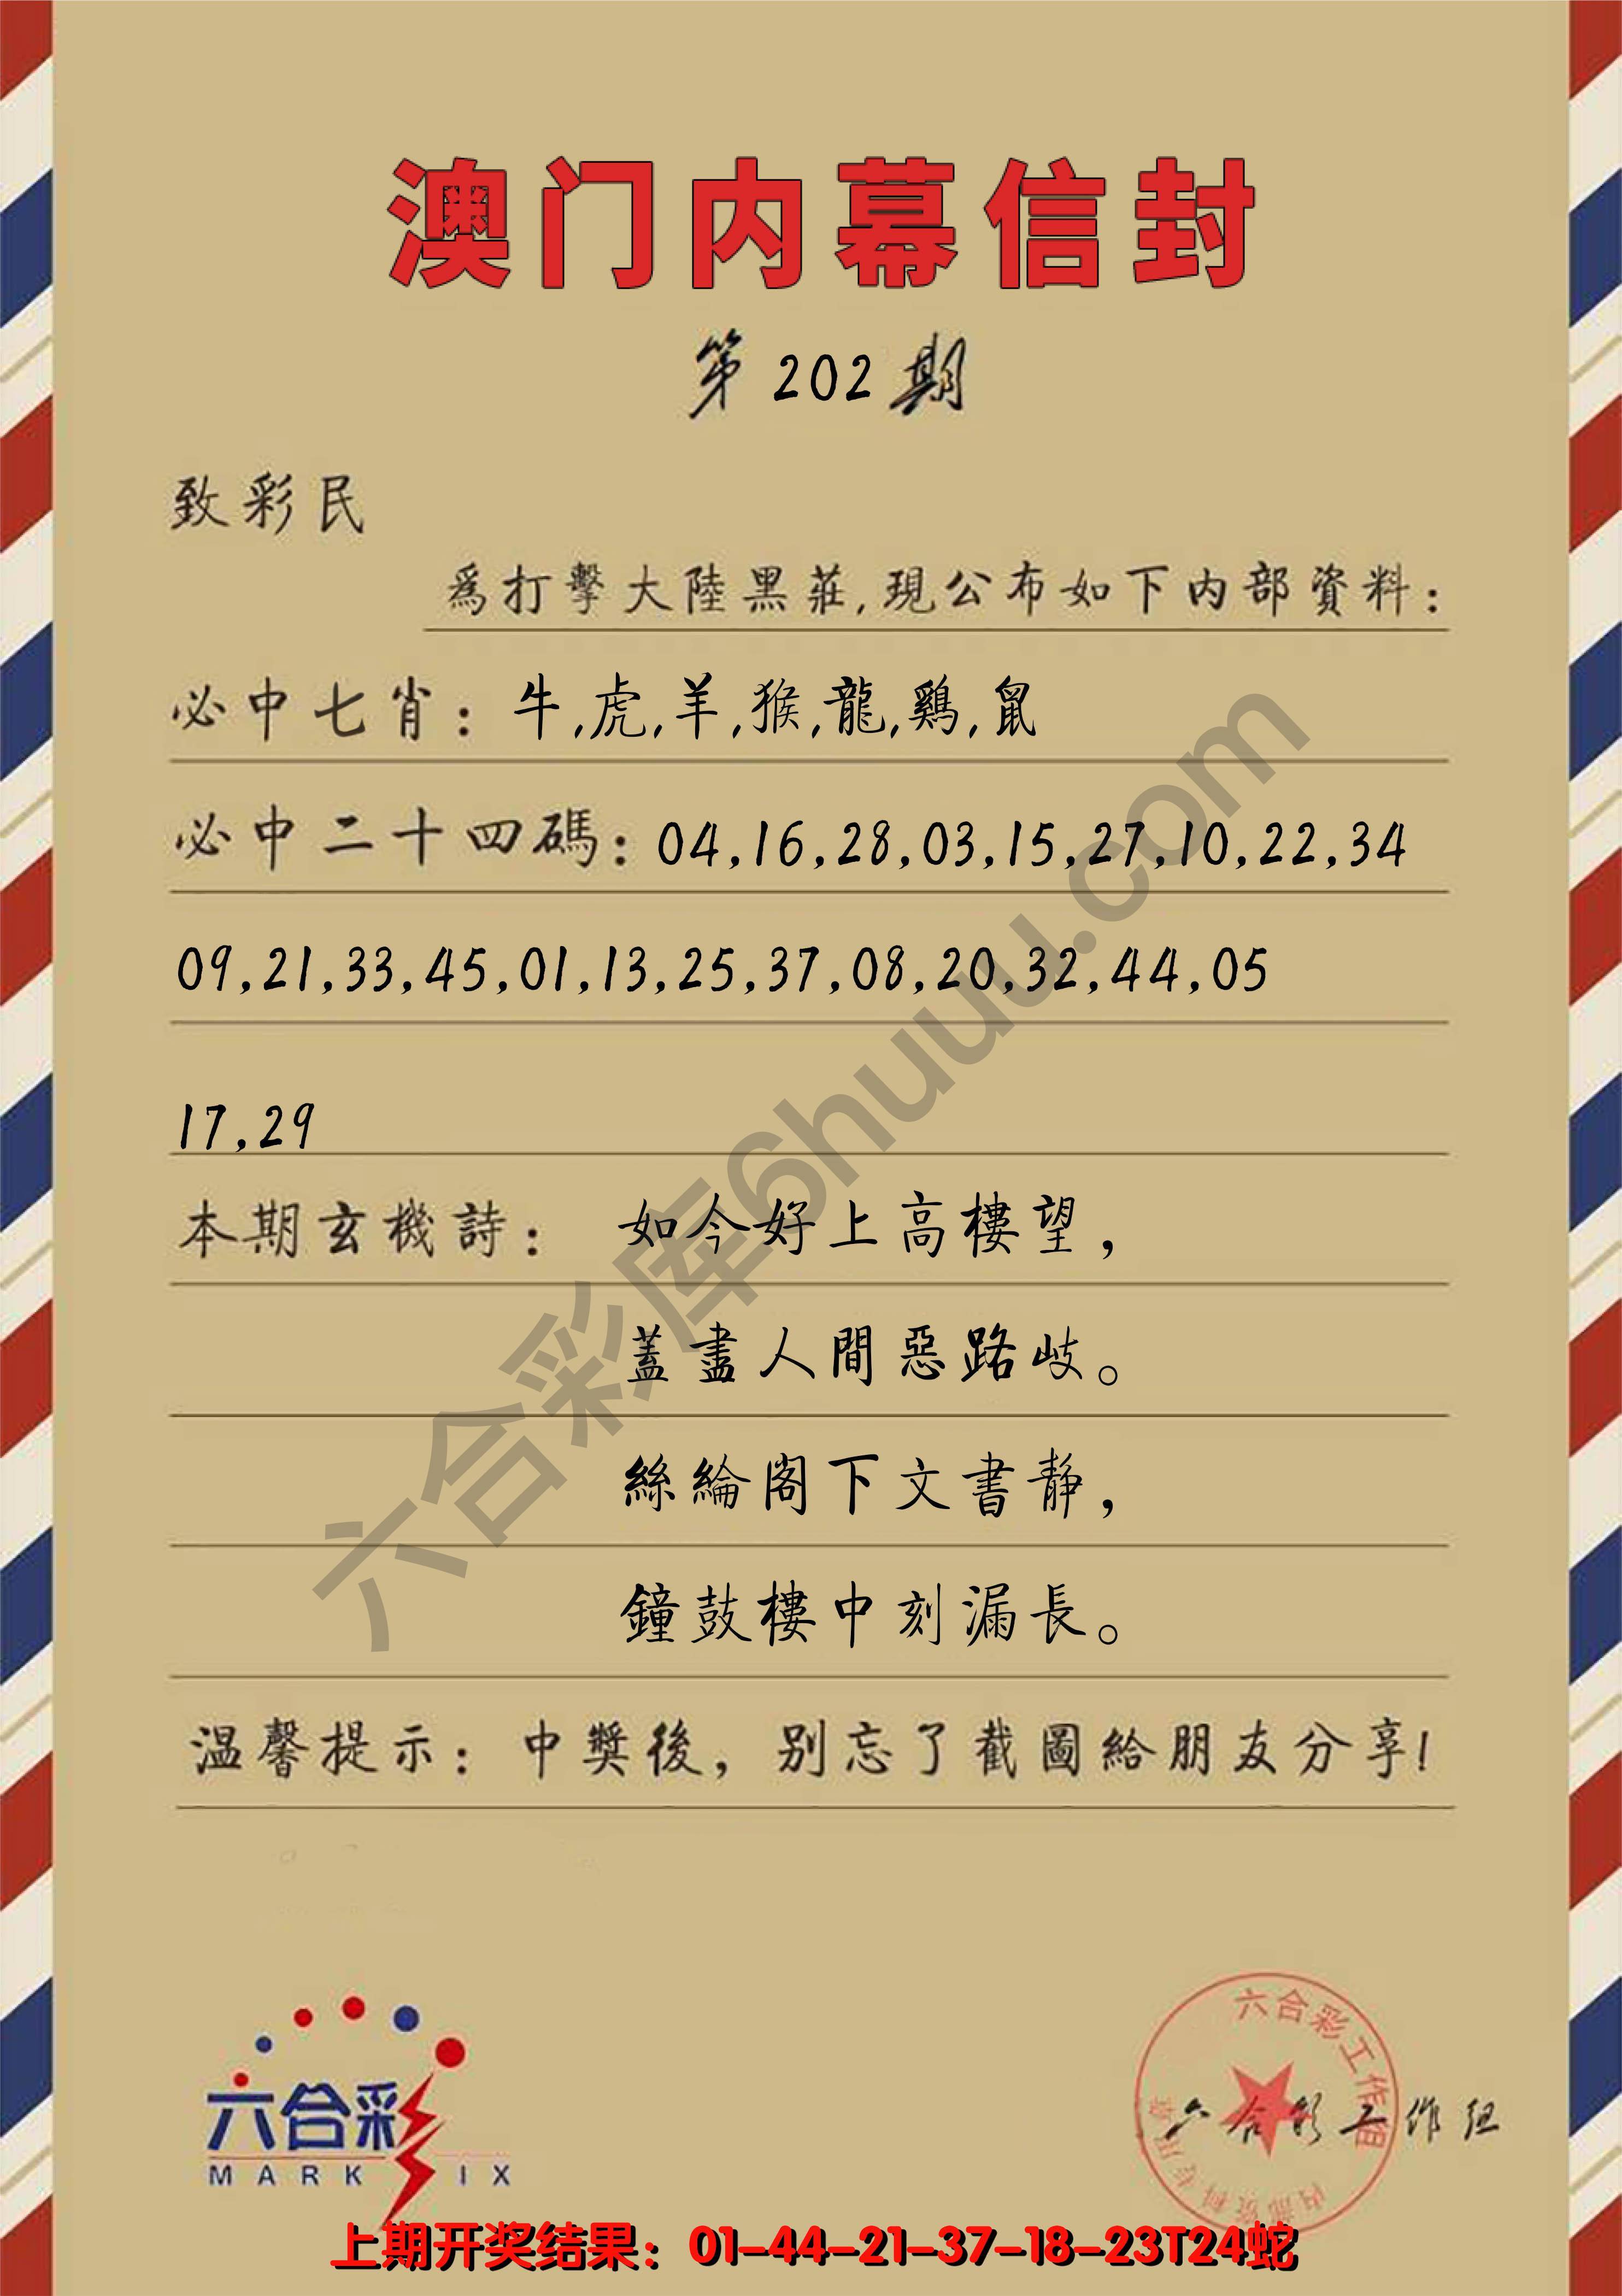 澳门内幕信封
第202期
致彩民
爲打擊大陸黑莊,現公布如下内部資料:
必中七肖: 牛,虎,羊,猴,龍,鷄,鼠
必中二十四碼: 04,16,28,03,15,27,10,22,34
09,21,33,45,01,13,25,37,08,20,32,44,05
17,29
本期玄機詩: 如今好上高樓望,
蓋盡人間惡路岐。
絲綸閣下文書静,
鐘鼓樓中刻漏長。
温馨提示: 中獎後, 别忘了截圖給朋友分享!
六合彩库6huuu.com
六合彩
MARK IX
六合彩工作组
内部资料专用章
六合彩工作组
上期开奖结果: 01-44-21-37-18-23T24蛇